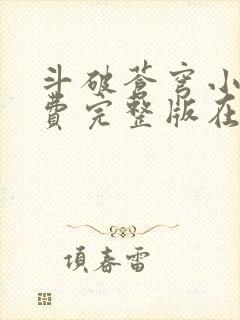 斗破苍穹小
费完整版在
項春雷